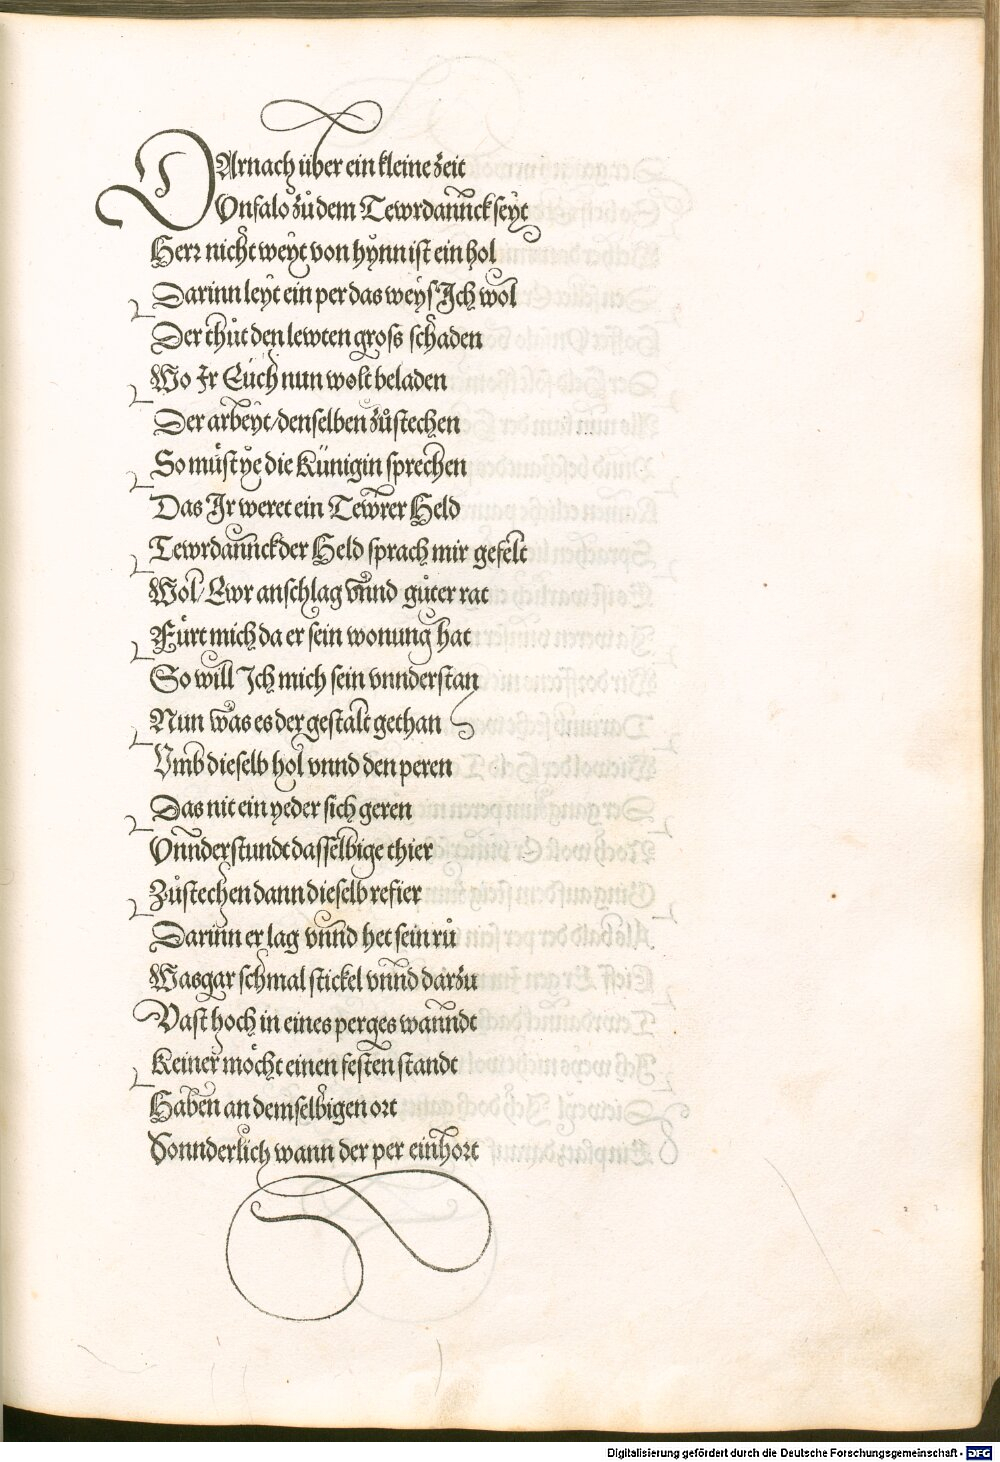 DArnach über ein kleine zeit
Vnfalo zů dem Tewrdannck seyt
Herr nicht weyt von hynn ist ein hol
Darinn leyt ein per das weyß Ich wol
Der thůt den lewten gross schaden
Wo Ir Euch nun wolt beladen
Der arbeyt / denselben zůstechen
So můst ye die Künigin sprechen
Das Ir weret ein Tewrer Held
Tewrdannck der Held sprach mir gefelt
Wol / Ewr anschlag vnnd gůter rat
Fürt mich da er sein wonung hat
So will Ich mich sein vnnderstan
Nun was es der gestalt gethan
Vmb dieselb hol vnnd den peren
Das nit ein yeder sich geren
Vnnderstundt dasselbige thier
Zůstechen dann dieselb refier
Darinn er lag vnnd het sein rů
Was gar schmal stickel vnnd darzu
Vast hoch in eines perges wanndt
Keiner möcht einen festen standt
Haben an demselbigen ort
Sonnderlich wann der per einhort
Digitalisierung gefördert durch die Deutsche Forschungsgemeinschaft - DFG